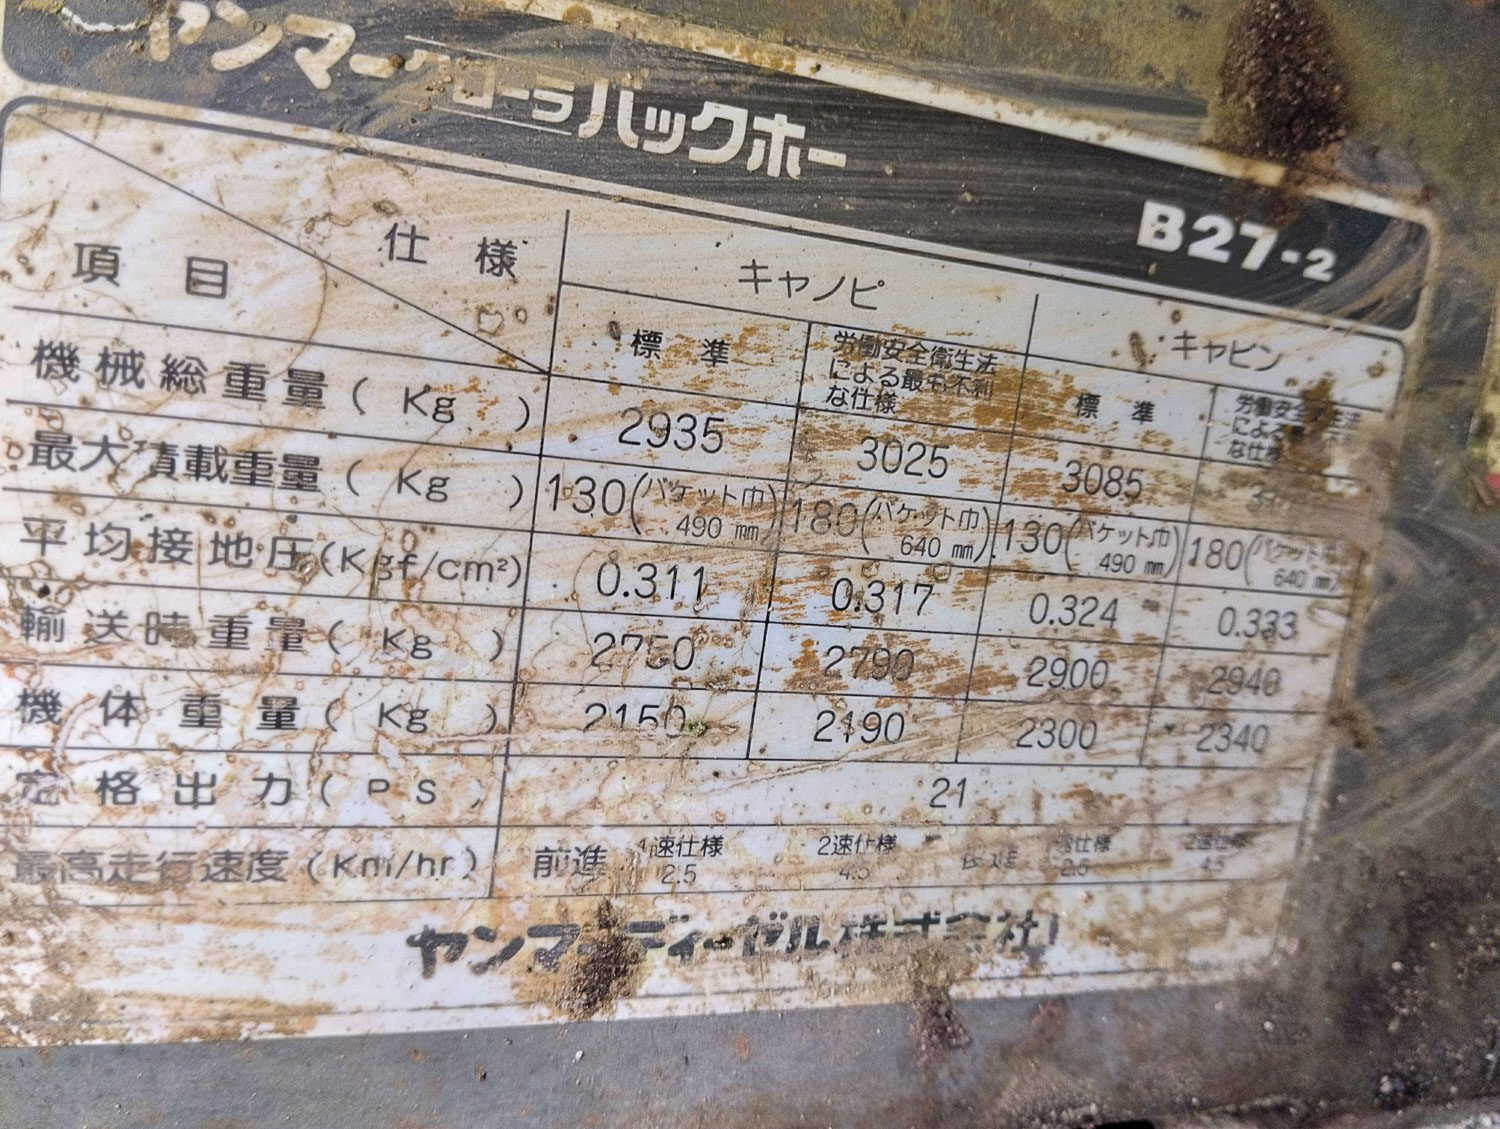 ヤンマークローラバックホー
B27-2
項目 仕様 キャノピ キャビン
標準 労働安全衛生法による最も不利な仕様 標準 労働安全衛生法による
機械総重量(Kg) 2935 3025 3085
最大積載重量(Kg) 130(バケット巾490mm) 180(バケット巾640mm) 130(バケット巾490mm) 180(バケット巾640mm)
平均接地圧(Kgf/cm²) 0.311 0.317 0.324 0.333
輸送時重量(Kg) 2750 2790 2900 2940
機体重量(Kg) 2150 2190 2300 2340
定格出力(PS) 21
最高走行速度(Km/hr) 前進 1速仕様2.5 2速仕様4.5 速仕様2.5 2速仕様4.5
ヤンマーディーゼル株式会社